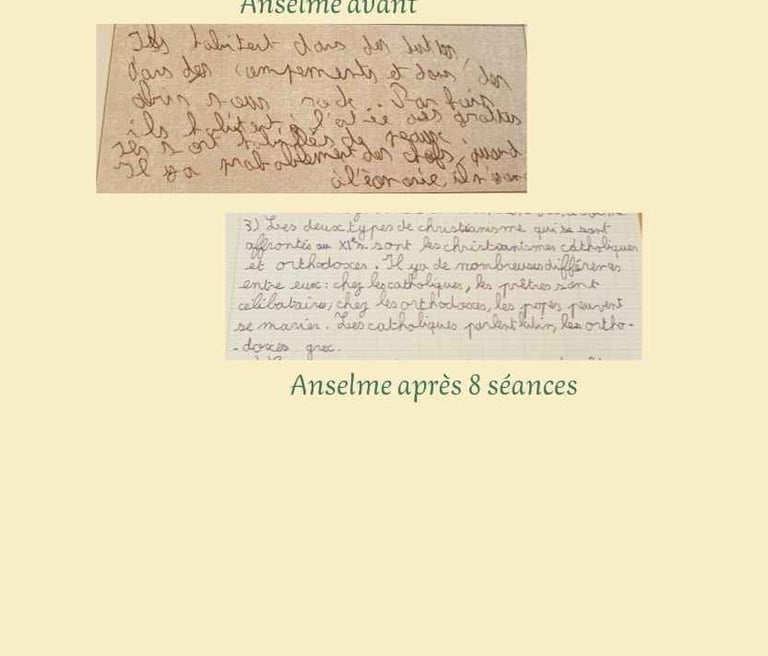 Anselme avant
Ils habitent dans des huttes,
dans des campements et dans des
abris sous roche. Parfois
ils habitent à l'entrée des grottes
Ils sont habillés de peaux.
Il y a probablement des chefs, quand
à l'économie, ils
3) Les deux types de christianisme qui se sont
affrontés au XIe s. sont les christianismes catholiques
et orthodoxes. Il y a de nombreuses différences
entre eux : chez les catholiques, les prêtres sont
célibataires, chez les orthodoxes, les popes peuvent
se marier. Les catholiques parlent latin, les ortho-
-doxes grec.
Anselme après 8 séances